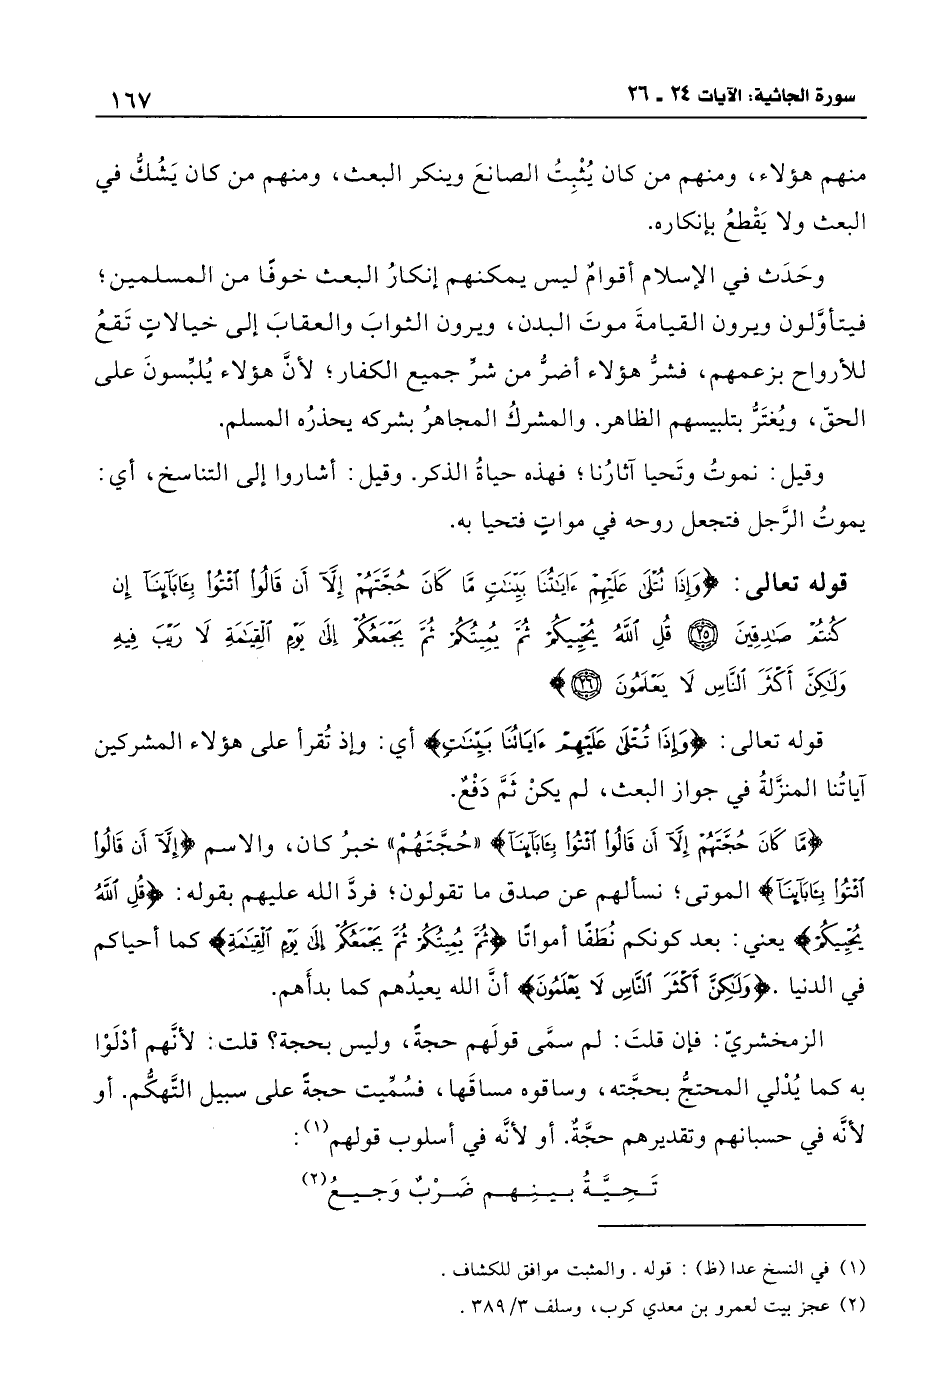 سورة الجاثية: الآيات ٢٤ - ٢٦ ١٦٧
منهم هؤلاء، ومنهم من كان يُثْبِتُ الصانعَ وينكر البعث، ومنهم من كان يَشُكُّ في
البعث ولا يَقْطعُ بإنكاره.
وحَدَث في الإسلام أقوامٌ ليس يمكنهم إنكارُ البعث خوفًا من المسلمين؛
فيتأوَّلون ويرون القيامةَ موتَ البدن، ويرون الثوابَ والعقابَ إلى خيالاتٍ تَقعُ
للأرواح بزعمهم، فشرُّ هؤلاء أضرُّ من شرِّ جميع الكفار؛ لأنَّ هؤلاء يُلبِّسونَ على
الحقّ، ويُغتَرُّ بتلبيسهم الظاهر. والمشركُ المجاهرُ بشركه يحذرُه المسلم.
وقيل: نموتُ وتَحيا آثارُنا؛ فهذه حياةُ الذكر. وقيل: أشاروا إلى التناسخ، أي:
يموتُ الرَّجل فتجعل روحه في مواتٍ فتحيا به.
قوله تعالى: ﴿وَإِذَا نُتْلَىٰ عَلَيْهِمْ ءَايَٰتُنَا بَيِّنَٰتٍ مَّا كَانَ حُجَّتَهُمْ إِلَّآ أَن قَالُوا۟ ٱئْتُوا۟ بِـَٔابَآئِنَآ إِن
كُنتُمْ صَٰدِقِينَ ۝٢٥ قُلِ ٱللَّهُ يُحْيِيكُمْ ثُمَّ يُمِيتُكُمْ ثُمَّ يَجْمَعُكُمْ إِلَىٰ يَوْمِ ٱلْقِيَٰمَةِ لَا رَيْبَ فِيهِ
وَلَٰكِنَّ أَكْثَرَ ٱلنَّاسِ لَا يَعْلَمُونَ ۝٢٦﴾
قوله تعالى: ﴿وَإِذَا تُتْلَىٰ عَلَيْهِمْ ءَايَاتُنَا بَيِّنَٰتٍ﴾ أي: وإذ تُقرأ على هؤلاء المشركين
آياتُنا المنزَّلةُ في جواز البعث، لم يكنْ ثَمَّ دَفْعٌ.
﴿مَّا كَانَ حُجَّتَهُمْ إِلَّآ أَن قَالُوا۟ ٱئْتُوا۟ بِـَٔابَآئِنَآ﴾ «حُجَّتَهُمْ» خبرُ كان، والاسم ﴿إِلَّآ أَن قَالُوا۟
ٱئْتُوا۟ بِـَٔابَآئِنَآ﴾ الموتى؛ نسألهم عن صدق ما تقولون؛ فردَّ الله عليهم بقوله: ﴿قُلِ ٱللَّهُ
يُحْيِيكُمْ﴾ يعني: بعد كونكم نُطَفًا أمواتًا ﴿ثُمَّ يُمِيتُكُمْ ثُمَّ يَجْمَعُكُمْ إِلَىٰ يَوْمِ ٱلْقِيَٰمَةِ﴾ كما أحياكم
في الدنيا. ﴿وَلَٰكِنَّ أَكْثَرَ ٱلنَّاسِ لَا يَعْلَمُونَ﴾ أنَّ الله يعيدُهم كما بدأَهم.
الزمخشريّ: فإن قلتَ: لم سمَّى قولَهم حجةً، وليس بحجة؟ قلت: لأنَّهم أدْلَوْا
به كما يُدْلي المحتجُّ بحجَّته، وساقوه مساقَها، فسُمِّيت حجةً على سبيل التَّهكُّم. أو
لأنَّه في حسبانهم وتقديرهم حجَّةٌ. أو لأنَّه في أسلوب قولهم(١):
تَحِيَّةُ بينِهم ضَرْبٌ وَجيعُ(٢)
(١) في النسخ عدا (ظ) : قوله . والمثبت موافق للكشاف .
(٢) عجز بيت لعمرو بن معدي كرب، وسلف ٣/ ٣٨٩ .